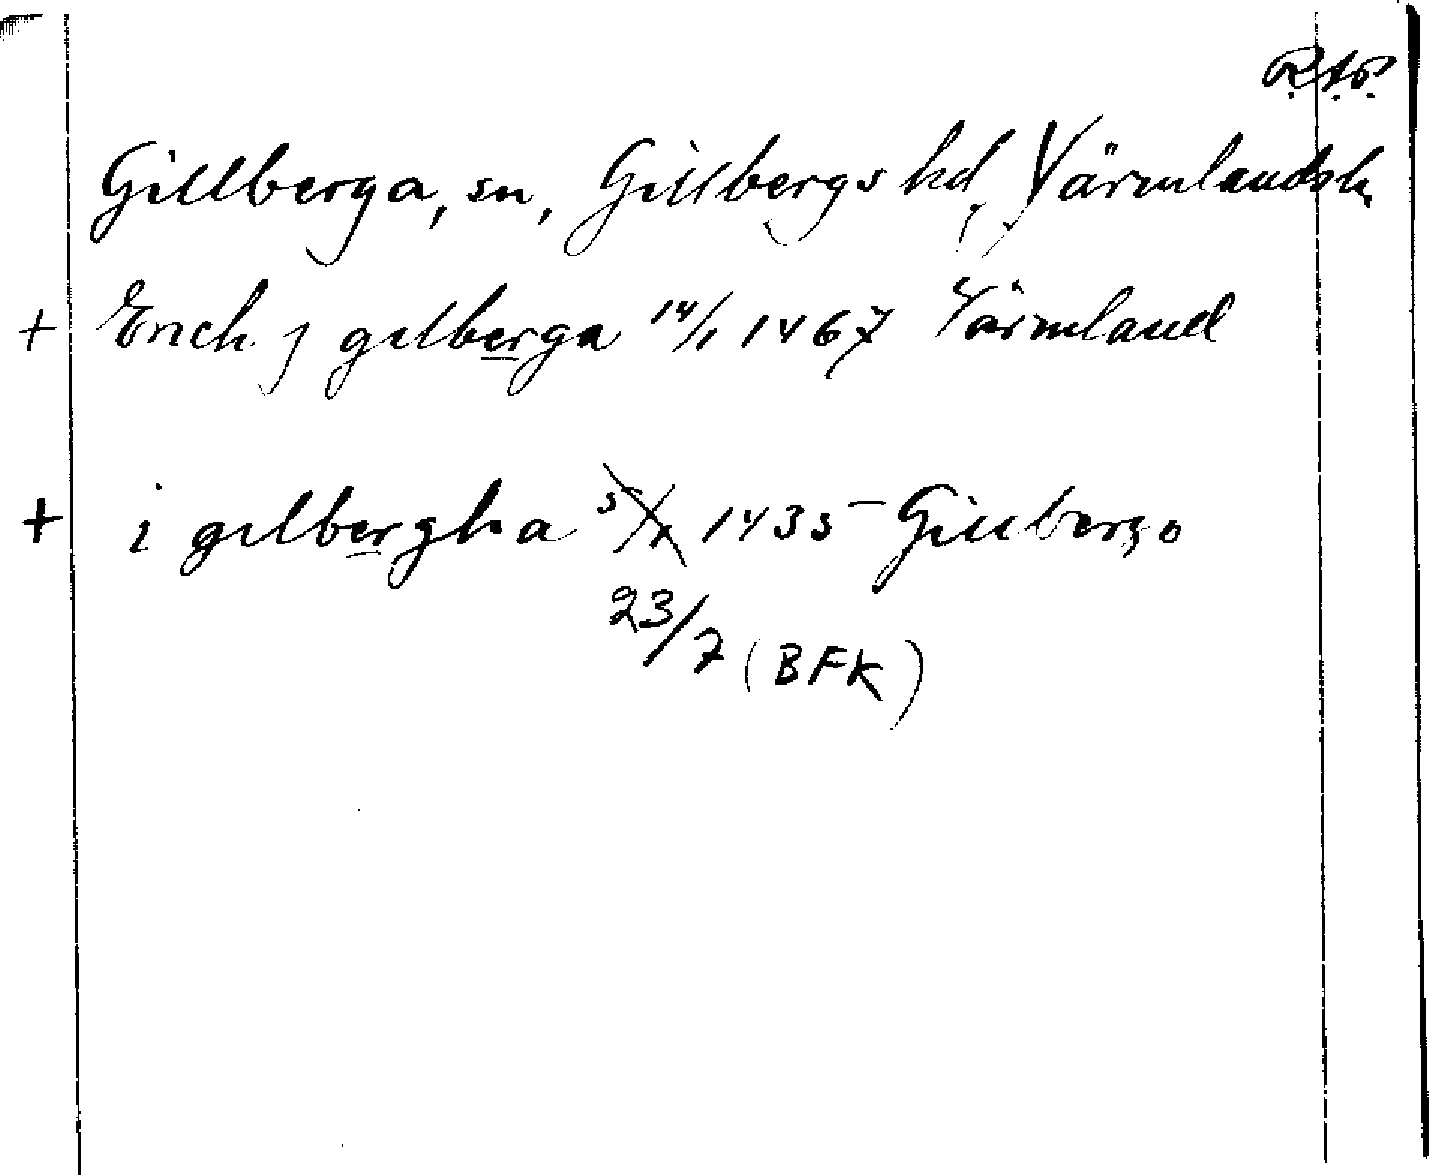 R.A.P.
Gillberga, sn, Gillbergs hd, Värmlands l.
+ Erich j gilberga 14/1 1467 Värmland
+ i gilbergha 5/1 1435 Gillberga
23/7 (BFK)